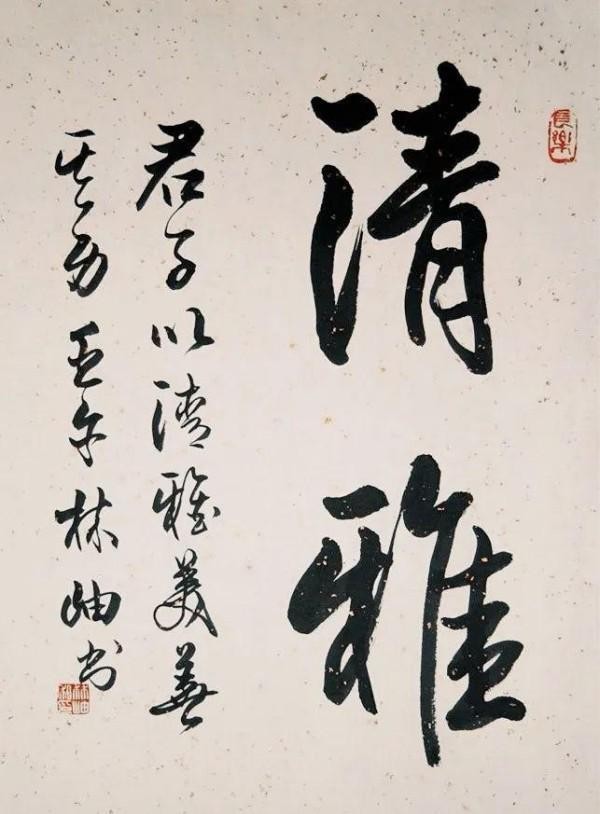 長樂
清雅
君子以清雅美善
其身 壬午 林岫书
林岫